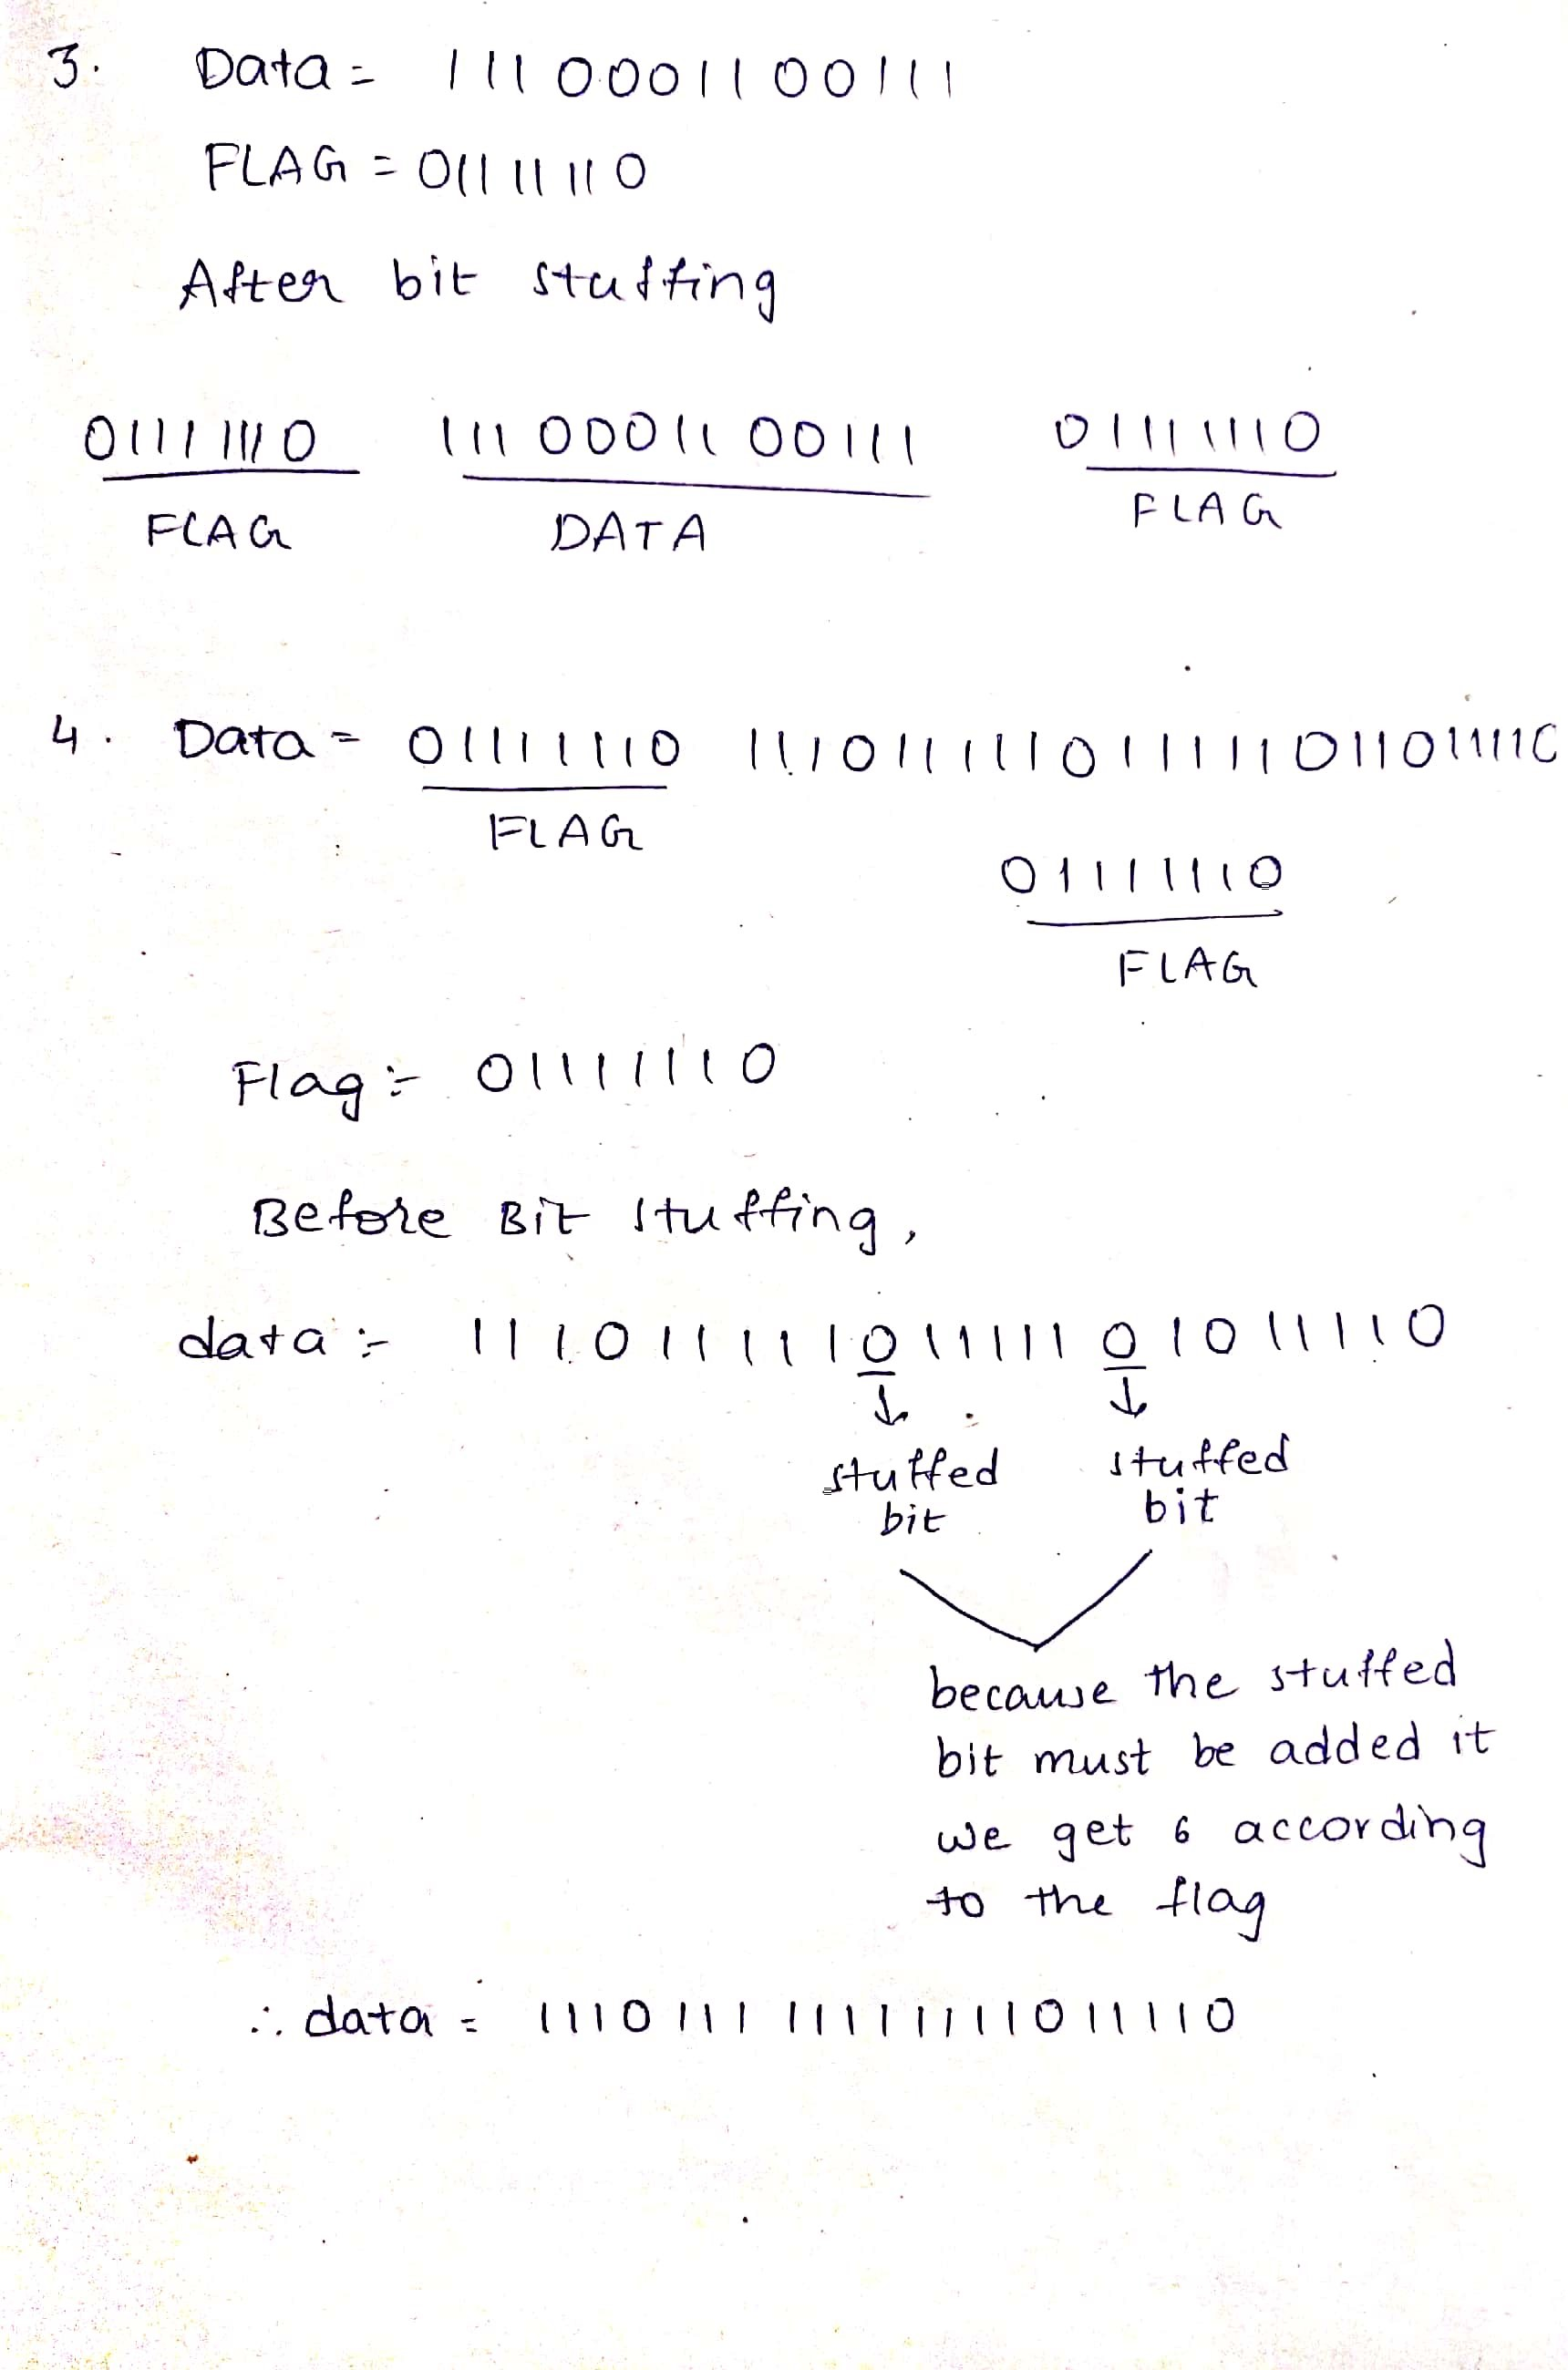 3. Data = 1110001100111
FLAG = 01111110
After bit stuffing
01111110 1110001100111 01111110
FLAG DATA FLAG
4. Data = 01111110 1110111110111110110111110
FLAG
01111110
FLAG
Flag :- 01111110
Before Bit stuffing,
data :- 11101111101111101011110
stuffed stuffed
bit bit
because the stuffed
bit must be added it
we get 6 according
to the flag
∴ data = 111011111111111011110